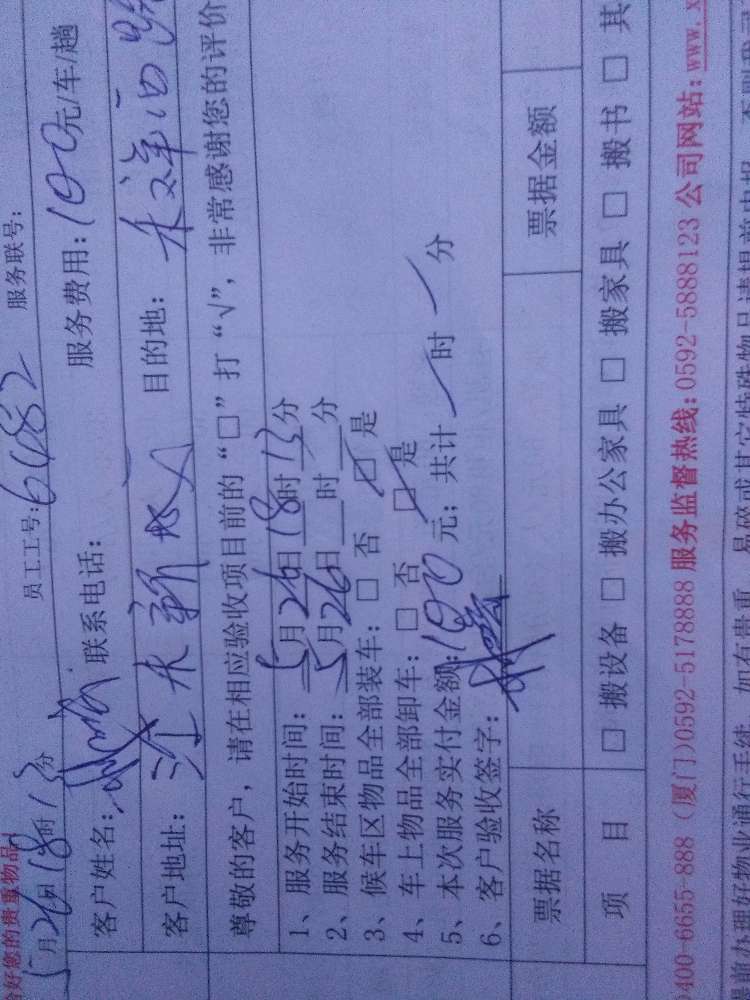 合好您的贵重物品!
5月26日18时13分 员工工号:6482 服务联号:
客户姓名: 联系电话: 服务费用:100元/车/趟
客户地址: 目的地:
尊敬的客户，请在相应验收项目前的“□”打“√”，非常感谢您的评价
1、服务开始时间:5月26日18时13分
2、服务结束时间:5月26日 时 分
3、候车区物品全部装车:□否 □是
4、车上物品全部卸车:□否 □是
5、本次服务实付金额:100元；共计 时 分
6、客户验收签字:
票据名称 票据金额
项 目 □搬设备 □搬办公家具 □搬家具 □搬书 □其
400-6655-888 (厦门)0592-5178888 服务监督热线:0592-5888123 公司网站:www.x
前办理好物业通行手续，如有贵重、易碎或其它特殊物品请提前申报，否则我司